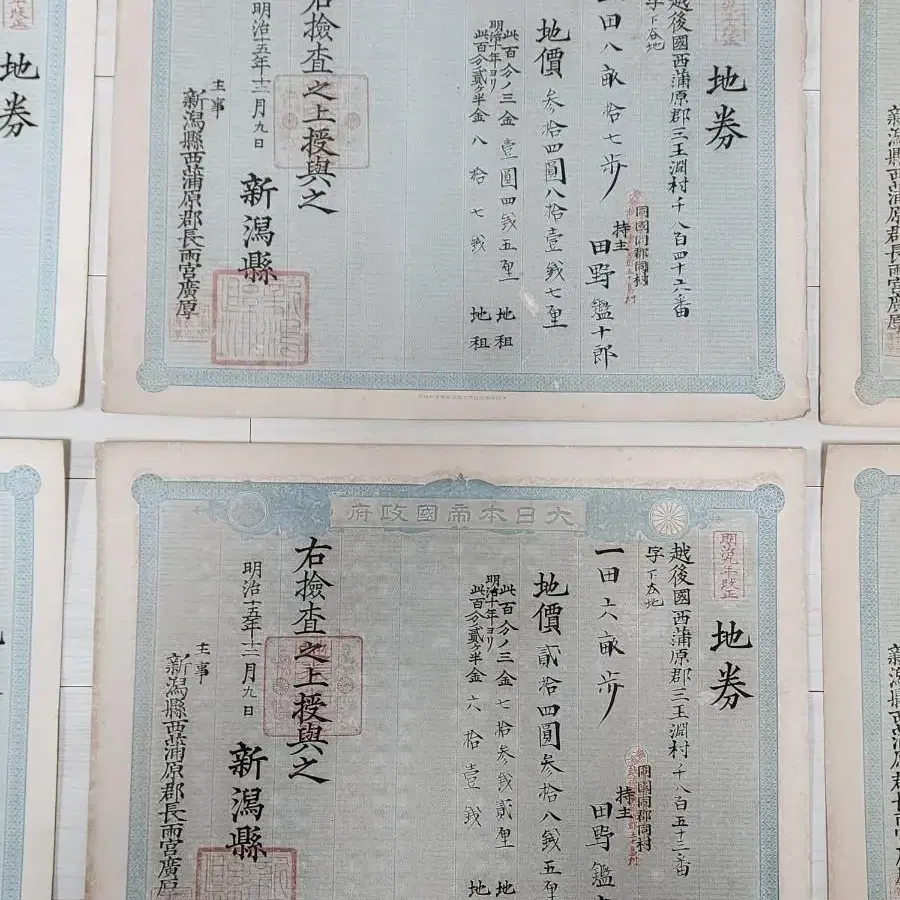 地券
越後國西蒲原郡三王淵村千八百四十六番
字下谷地
田八畝拾七歩
同國同郡同村
持主
田野鑑十郎
地價
参拾四圓八拾壹銭七厘
此百分ノ三金壹圓四銭五厘
地租
明治十年ヨリ
此百分貳ケ半金八拾七銭
地租
右撿査之上授與之
明治十五年十二月九日
新潟縣
主事
新潟縣西蒲原郡長雨宮廣厚
地券
新潟縣西蒲原郡長雨宮廣厚
大日本帝國政府
明治九年改正
地券
越後國西蒲原郡三王淵村千八百五十三番
字下谷地
一田六畝歩
同國同郡同村
持主
田野鑑
地價
貳拾四圓参拾八銭五厘
此百分ノ三金七拾参銭貳厘
地
明治十年ヨリ
此百分貳ケ半金六拾壹銭
地
右撿査之上授與之
明治十五年十二月九日
新潟縣
主事
新潟縣西蒲原郡長雨宮廣厚